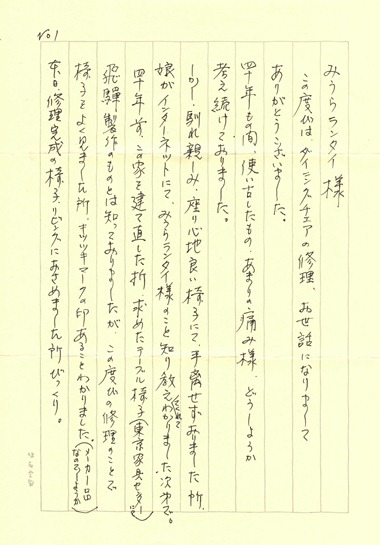 No1
みうらランタイ様
この度は、ダイニングチェアの修理、お世話になりまして
ありがとうございました。
四十年もの間、使い古したもの、あまりの痛み様、どうしようか
考え続けておりました。
しかし、馴れ親しみ、座り心地良い椅子にて、手離せずおりました所、
娘がインターネットにて、みうらランタイ様のこと知り教えてくれてわかりました次第で。
四十年前、この家を建て直した折、求めたテーブル椅子(東京家具センターにて)
飛騨製作のものとは知っておりましたが、この度の修理のことで
椅子をよく見ました所、キツツキマークの印あることわかりました。(メーカー品なのでしょうか)
本日修理完成の椅子、リビングにおさめました所びっくり。